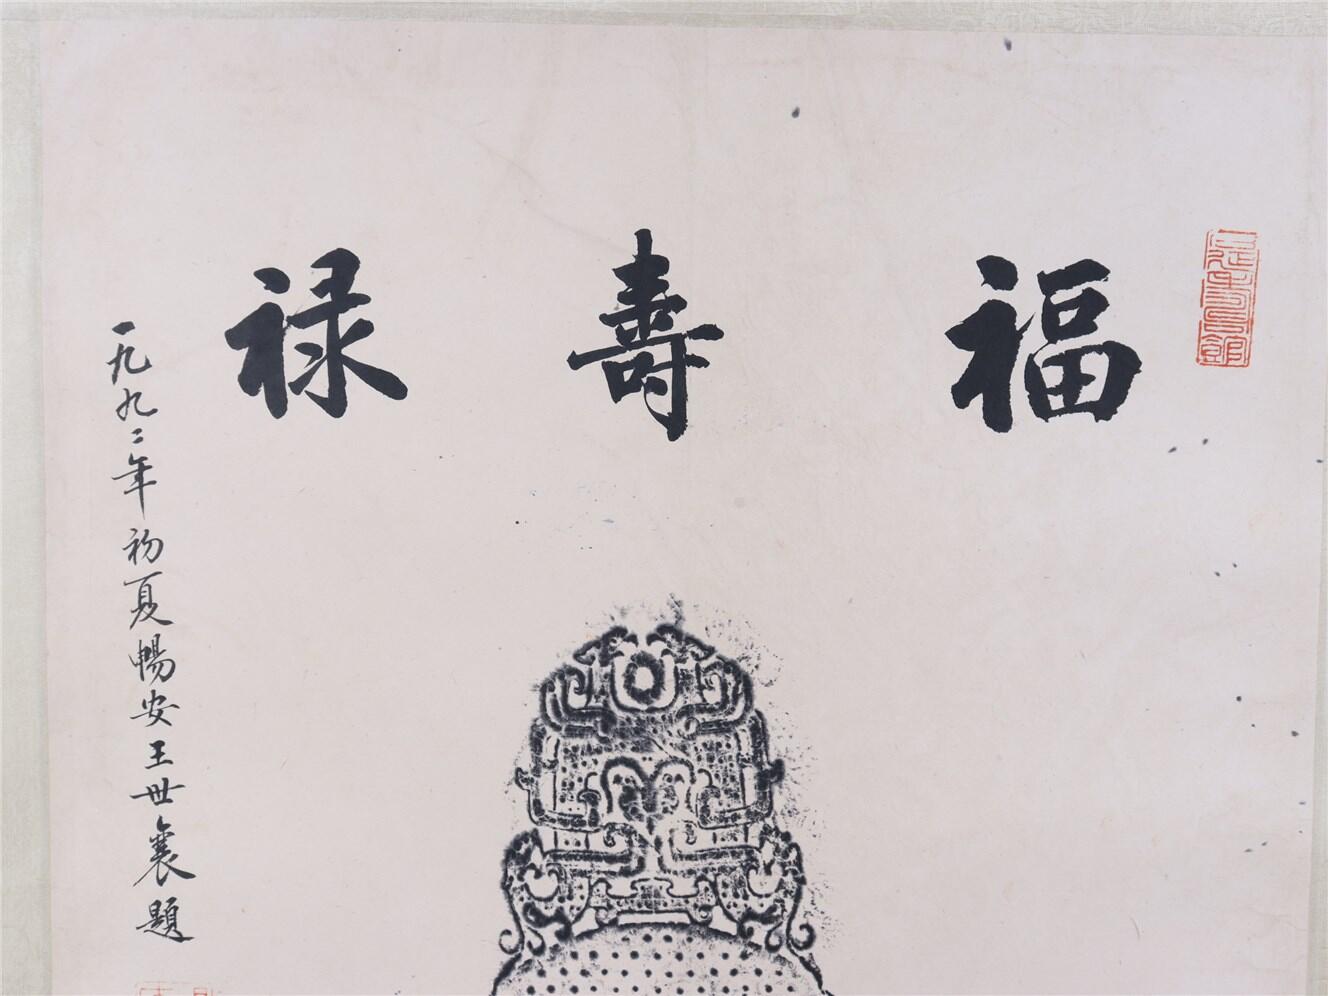 福壽禄
一九九二年初夏暢安王世襄題